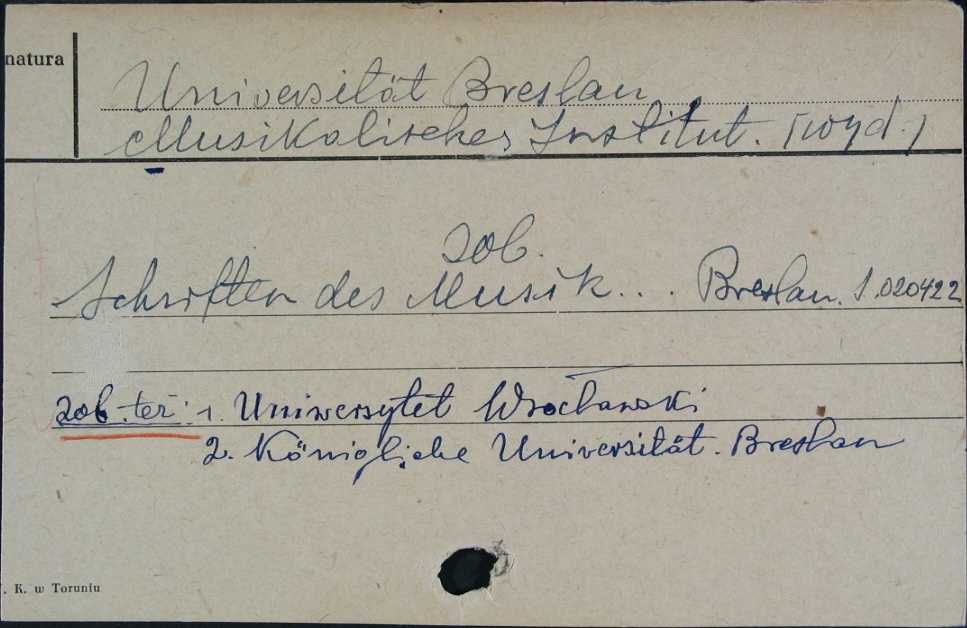 natura
Universität Breslau
Musikalisches Institut. [wyd.]
zob.
Schriften des Musik... Breslau. S.020422
zob. też: 1. Uniwersytet Wrocławski
2. Königliche Universität. Breslau
. K. w Toruniu